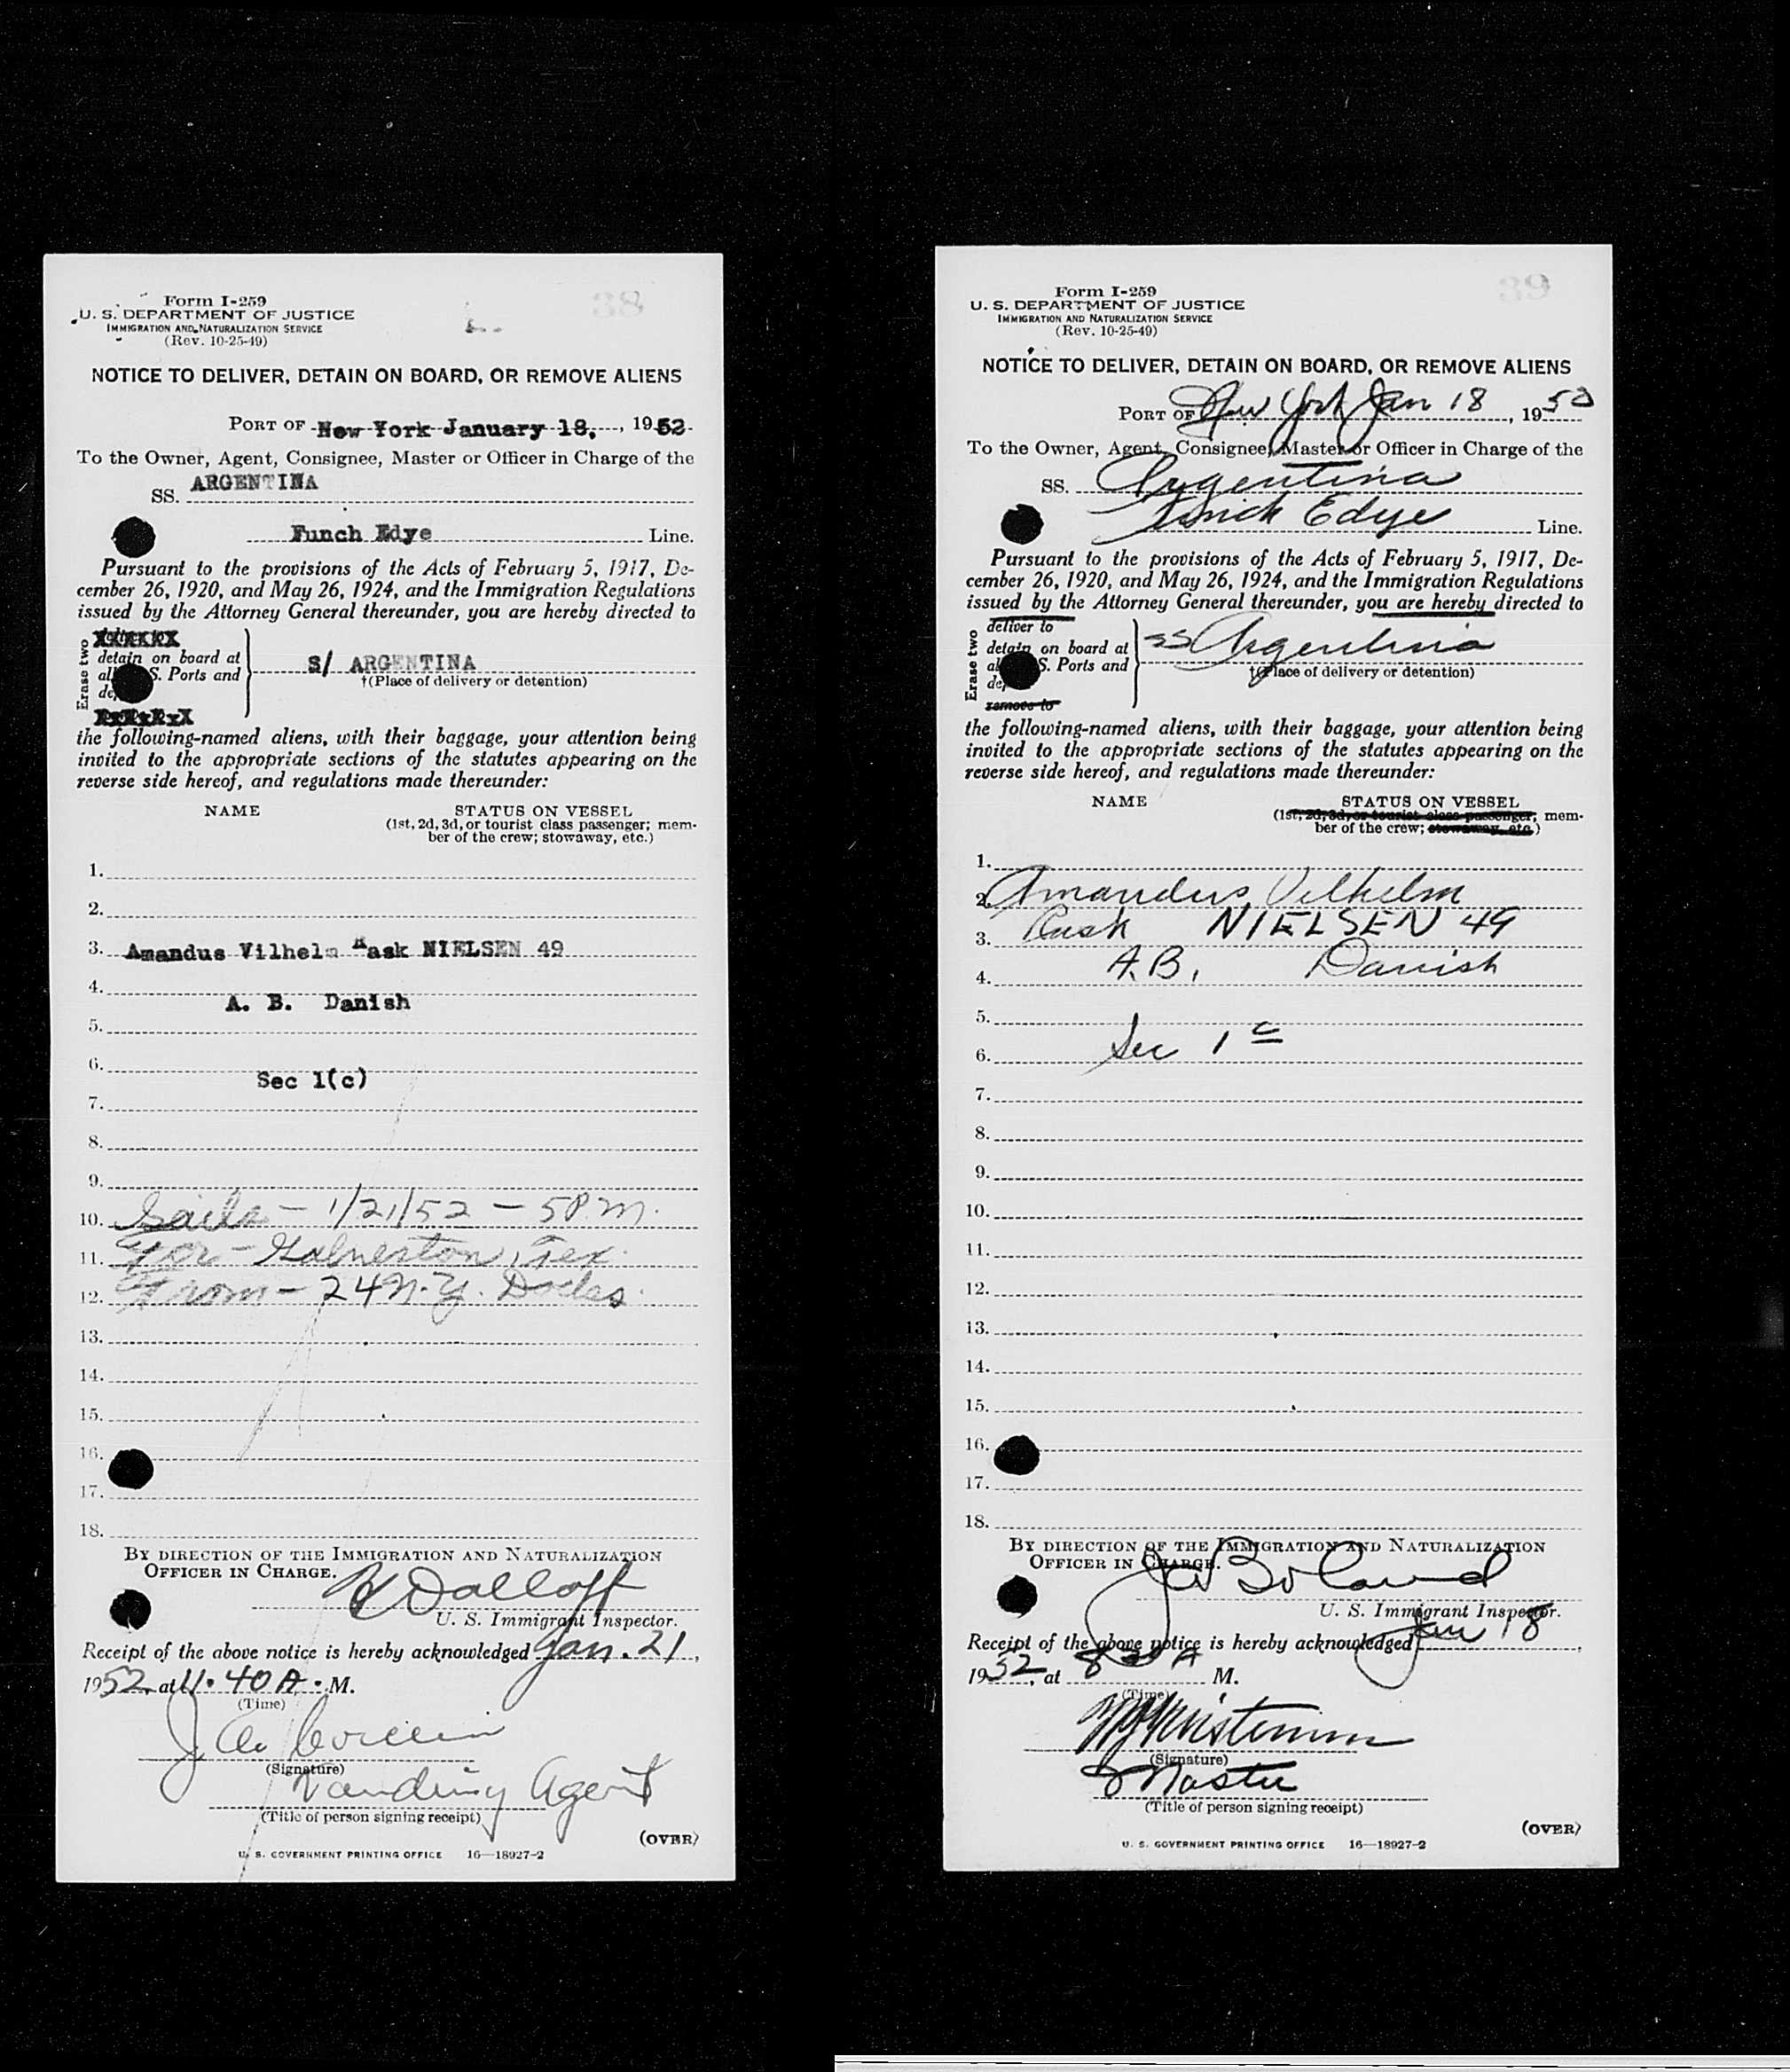 38
Form I-259
U. S. DEPARTMENT OF JUSTICE
IMMIGRATION AND NATURALIZATION SERVICE
(Rev. 10-25-49)
NOTICE TO DELIVER, DETAIN ON BOARD, OR REMOVE ALIENS
PORT OF New York January 18, , 1952
To the Owner, Agent, Consignee, Master or Officer in Charge of the
SS. ARGENTINA
Funch Edye Line.
Pursuant to the provisions of the Acts of February 5, 1917, De-
cember 26, 1920, and May 26, 1924, and the Immigration Regulations
issued by the Attorney General thereunder, you are hereby directed to
Erase two
detain on board at
S. Ports and
S/ ARGENTINA
†(Place of delivery or detention)
the following-named aliens, with their baggage, your attention being
invited to the appropriate sections of the statutes appearing on the
reverse side hereof, and regulations made thereunder:
NAME STATUS ON VESSEL
(1st, 2d, 3d, or tourist class passenger; mem-
ber of the crew; stowaway, etc.)
1.
2.
3. Amandus Vilhelm Rask NIELSEN 49
4.
A. B. Danish
5.
6.
Sec 1(c)
7.
8.
9.
10. Sails - 1/21/52 - 5 P.M.
11. For - Galveston, Tex.
12. From - 24 N.Y. Docks
13.
14.
15.
16.
17.
18.
BY DIRECTION OF THE IMMIGRATION AND NATURALIZATION
OFFICER IN CHARGE.
U. S. Immigrant Inspector.
Receipt of the above notice is hereby acknowledged Jan. 21,
1952, at 11.40 A. M.
(Time)
(Signature)
Agent
(Title of person signing receipt)
(OVER)
U. S. GOVERNMENT PRINTING OFFICE 16—18927-2
39
Form I-259
U. S. DEPARTMENT OF JUSTICE
IMMIGRATION AND NATURALIZATION SERVICE
(Rev. 10-25-49)
NOTICE TO DELIVER, DETAIN ON BOARD, OR REMOVE ALIENS
PORT OF New York Jan 18 , 1952
To the Owner, Agent, Consignee, Master or Officer in Charge of the
SS. Argentina
Funch Edye Line.
Pursuant to the provisions of the Acts of February 5, 1917, De-
cember 26, 1920, and May 26, 1924, and the Immigration Regulations
issued by the Attorney General thereunder, you are hereby directed to
Erase two
deliver to
detain on board at
S. Ports and
remove to
SS Argentina
†(Place of delivery or detention)
the following-named aliens, with their baggage, your attention being
invited to the appropriate sections of the statutes appearing on the
reverse side hereof, and regulations made thereunder:
NAME STATUS ON VESSEL
(1st, 2d, 3d, or tourist class passenger; mem-
ber of the crew; stowaway, etc.)
1.
2. Amandus Vilhelm
3. Rask NIELSEN 49
4. A.B. Danish
5.
6. Sec 1 c
7.
8.
9.
10.
11.
12.
13.
14.
15.
16.
17.
18.
BY DIRECTION OF THE IMMIGRATION AND NATURALIZATION
OFFICER IN CHARGE.
Boland
U. S. Immigrant Inspector.
Receipt of the above notice is hereby acknowledged Jan 18,
1952, at 8 30 A M.
(Time)
(Signature)
Master
(Title of person signing receipt)
(OVER)
U. S. GOVERNMENT PRINTING OFFICE 16—18927-2